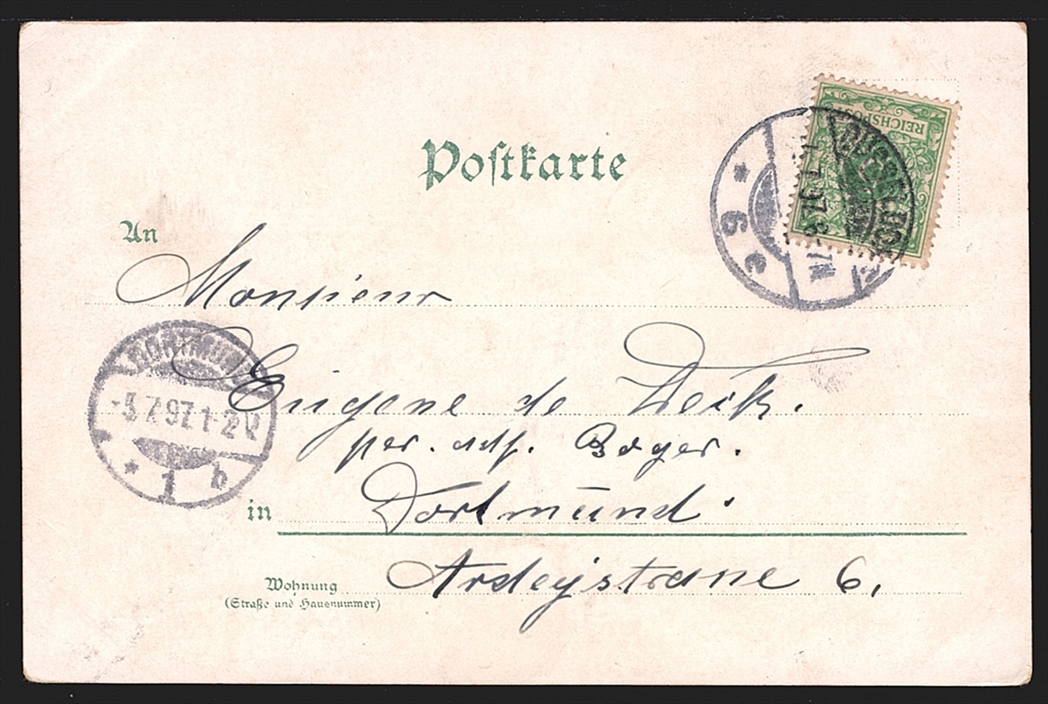 Postkarte
REICHSPOST
An
Monsieur
DORTMUND
-3.7.97.1-2N
* 1 b
Eugene de Weck.
per. adr. Boger.
in Dortmund.
Wohnung
(Straße und Hausnummer)
Ardeystrane 6.
* 6 e